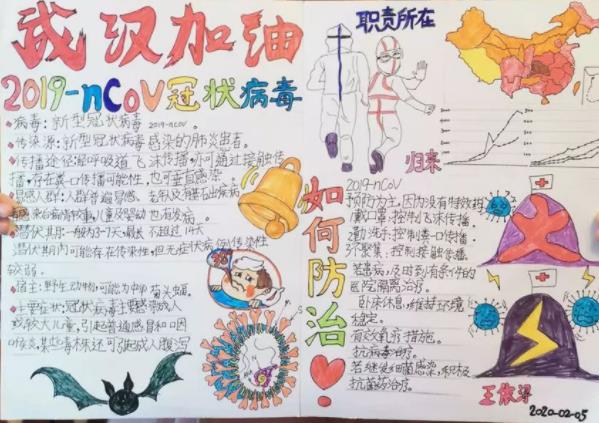 武汉加油
2019-nCoV冠状病毒
病毒:新型冠状病毒 2019-nCoV。
传染源:新型冠状病毒感染的肺炎患者。
传播途径:经呼吸道飞沫传播,亦可通过接触传
播,存在粪口传播可能性,也可垂直感
易感人群:人群普遍易感。老年人及有基础疾病
者感染后病情较重,儿童及婴幼也有发病。
潜伏期:一般为3-7天,最长不超过14天
潜伏期内可能存在传染性,但无症状病例传染性
较弱。
宿主:野生动物,可能为中华菊头蝠。
主要症状:冠状病毒主要感染成人
或较大儿童,引起普通感冒和咽
喉炎,某些毒株还可引起成人腹泻
职责所在
归来
如何防治
2019-nCoV
预防为主,因为没有特效药
戴口罩:控制飞沫传播。
勤洗手:控制粪口传播。
不聚集:控制接触传播。
若患病,及时到有条件的
医院隔离治疗。
卧床休息,维持环境
稳定。
有效氧疗措施。
抗病毒治疗。
若继发细菌感染,积极
抗菌药治疗。
2020-02-05